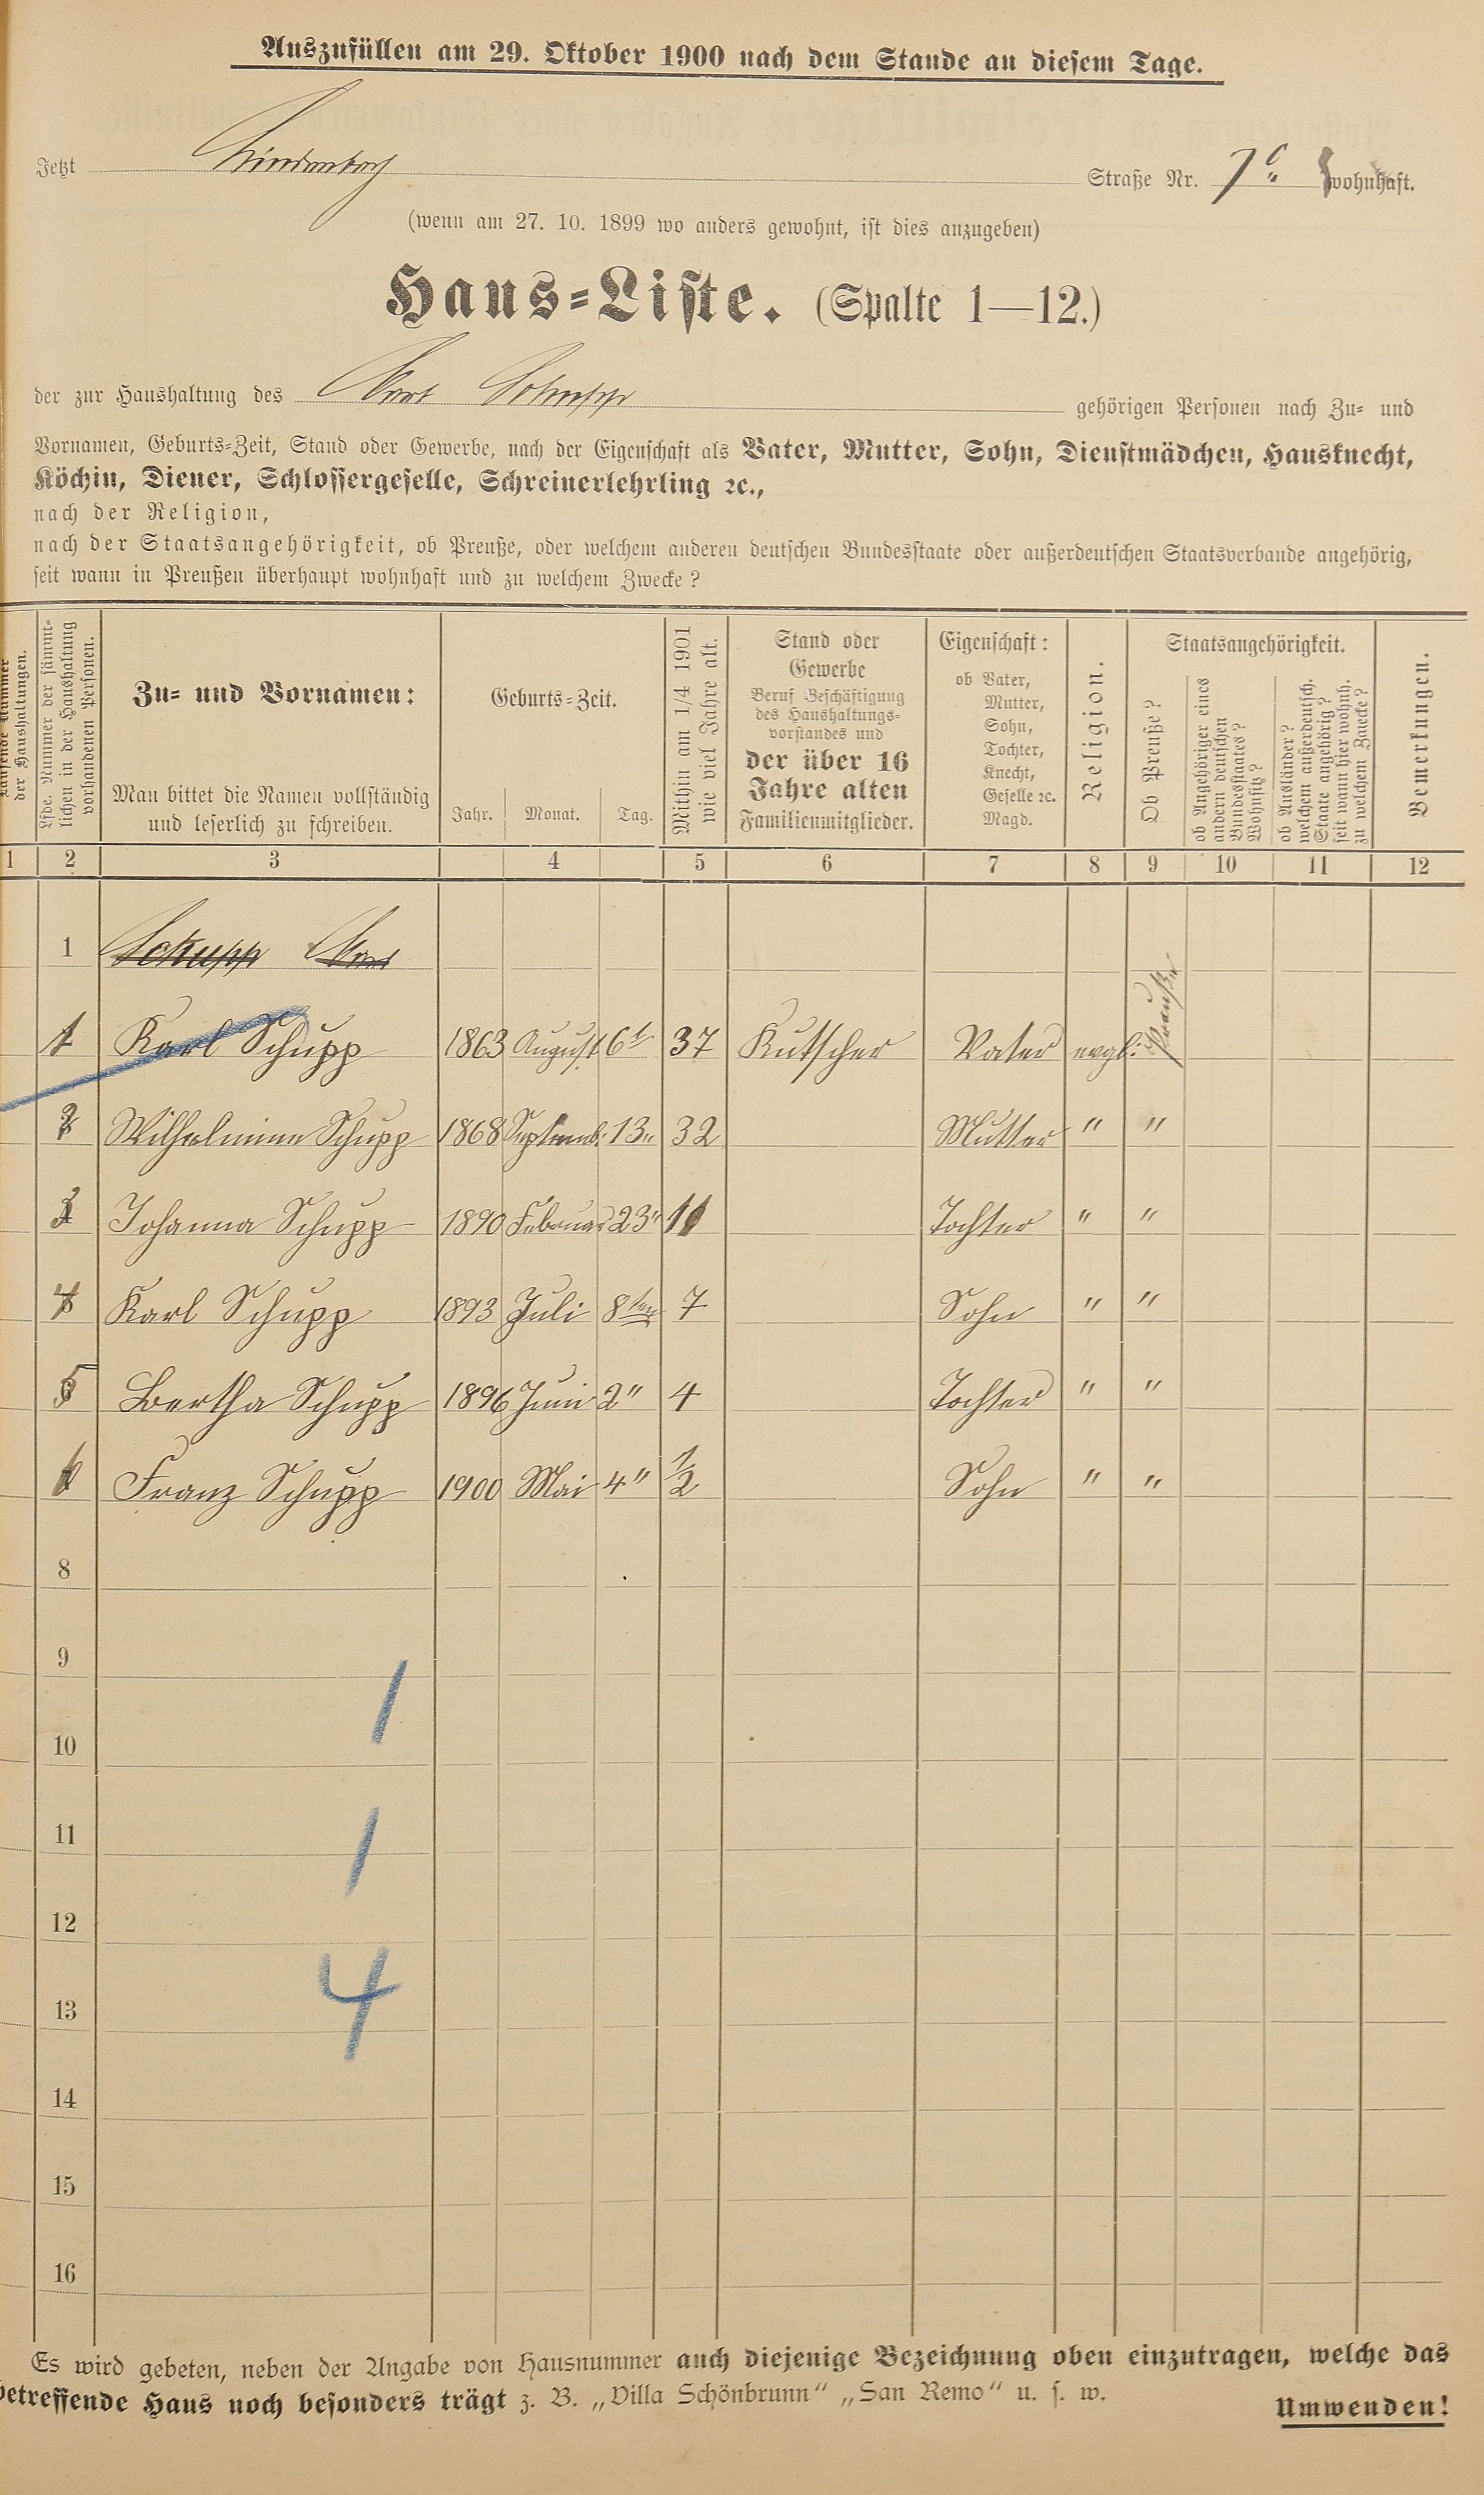 Auszufüllen am 29. Oktober 1900 nach dem Stande an diesem Tage.
Jetzt Lindenbach Straße Nr. 7c wohnhaft.
(wenn am 27. 10. 1899 wo anders gewohnt, ist dies anzugeben)
Haus-Liste. (Spalte 1—12.)
der zur Haushaltung des Karl Schupp gehörigen Personen nach Zu- und
Vornamen, Geburts-Zeit, Stand oder Gewerbe, nach der Eigenschaft als Vater, Mutter, Sohn, Dienstmädchen, Hausknecht,
Köchin, Diener, Schlossergeselle, Schreinerlehrling ꝛc.,
nach der Religion,
nach der Staatsangehörigkeit, ob Preuße, oder welchem anderen deutschen Bundesstaate oder außerdeutschen Staatsverbande angehörig,
seit wann in Preußen überhaupt wohnhaft und zu welchem Zwecke?
Laufende Nummer
der Haushaltungen.
Lfde. Nummer der sämmt-
lichen in der Haushaltung
vorhandenen Personen.
Zu- und Vornamen:
Man bittet die Namen vollständig
und leserlich zu schreiben.
Geburts-Zeit.
Jahr. Monat. Tag.
Mithin am 1/4 1901
wie viel Jahre alt.
Stand oder
Gewerbe
Beruf Beschäftigung
des Haushaltungs-
vorstandes und
der über 16
Jahre alten
Familienmitglieder.
Eigenschaft:
ob Vater,
Mutter,
Sohn,
Tochter,
Knecht,
Geselle ꝛc.
Magd.
Religion.
Staatsangehörigkeit.
Ob Preuße?
ob Angehöriger eines
andern deutschen
Bundesstaates?
Wohnsitz?
ob Ausländer?
welchem außerdeutsch.
Staate angehörig?
seit wann hier wohnh.
zu welchem Zwecke?
Bemerkungen.
1 2 3 4 5 6 7 8 9 10 11 12
1 Schupp Karl
1 Karl Schupp 1863 August 6t 37 Kutscher Vater evgl: Preuße
2 Wilhelmine Schupp 1868 Septemb: 13" 32 Mutter " "
3 Johanna Schupp 1890 Februar 23" 11 Tochter " "
4 Karl Schupp 1893 Juli 8ten 7 Sohn " "
5 Bertha Schupp 1896 Juni 2" 4 Tochter " "
6 Franz Schupp 1900 Mai 4" 1/2 Sohn " "
8
9
1
10
11
1
12
4
13
14
15
16
Es wird gebeten, neben der Angabe von Hausnummer auch diejenige Bezeichnung oben einzutragen, welche das
betreffende Haus noch besonders trägt z. B. „Villa Schönbrunn“ „San Remo“ u. s. w.
Umwenden!